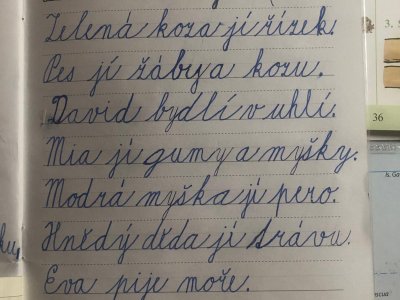 Zelená koza jí řízek.
Pes jí žáby a kozu.
David bydlí v uhlí.
Mia jí gumy a myšky.
Modrá myška jí pero.
Hnědý děda jí trávu.
Eva pije moře.
3. S
36